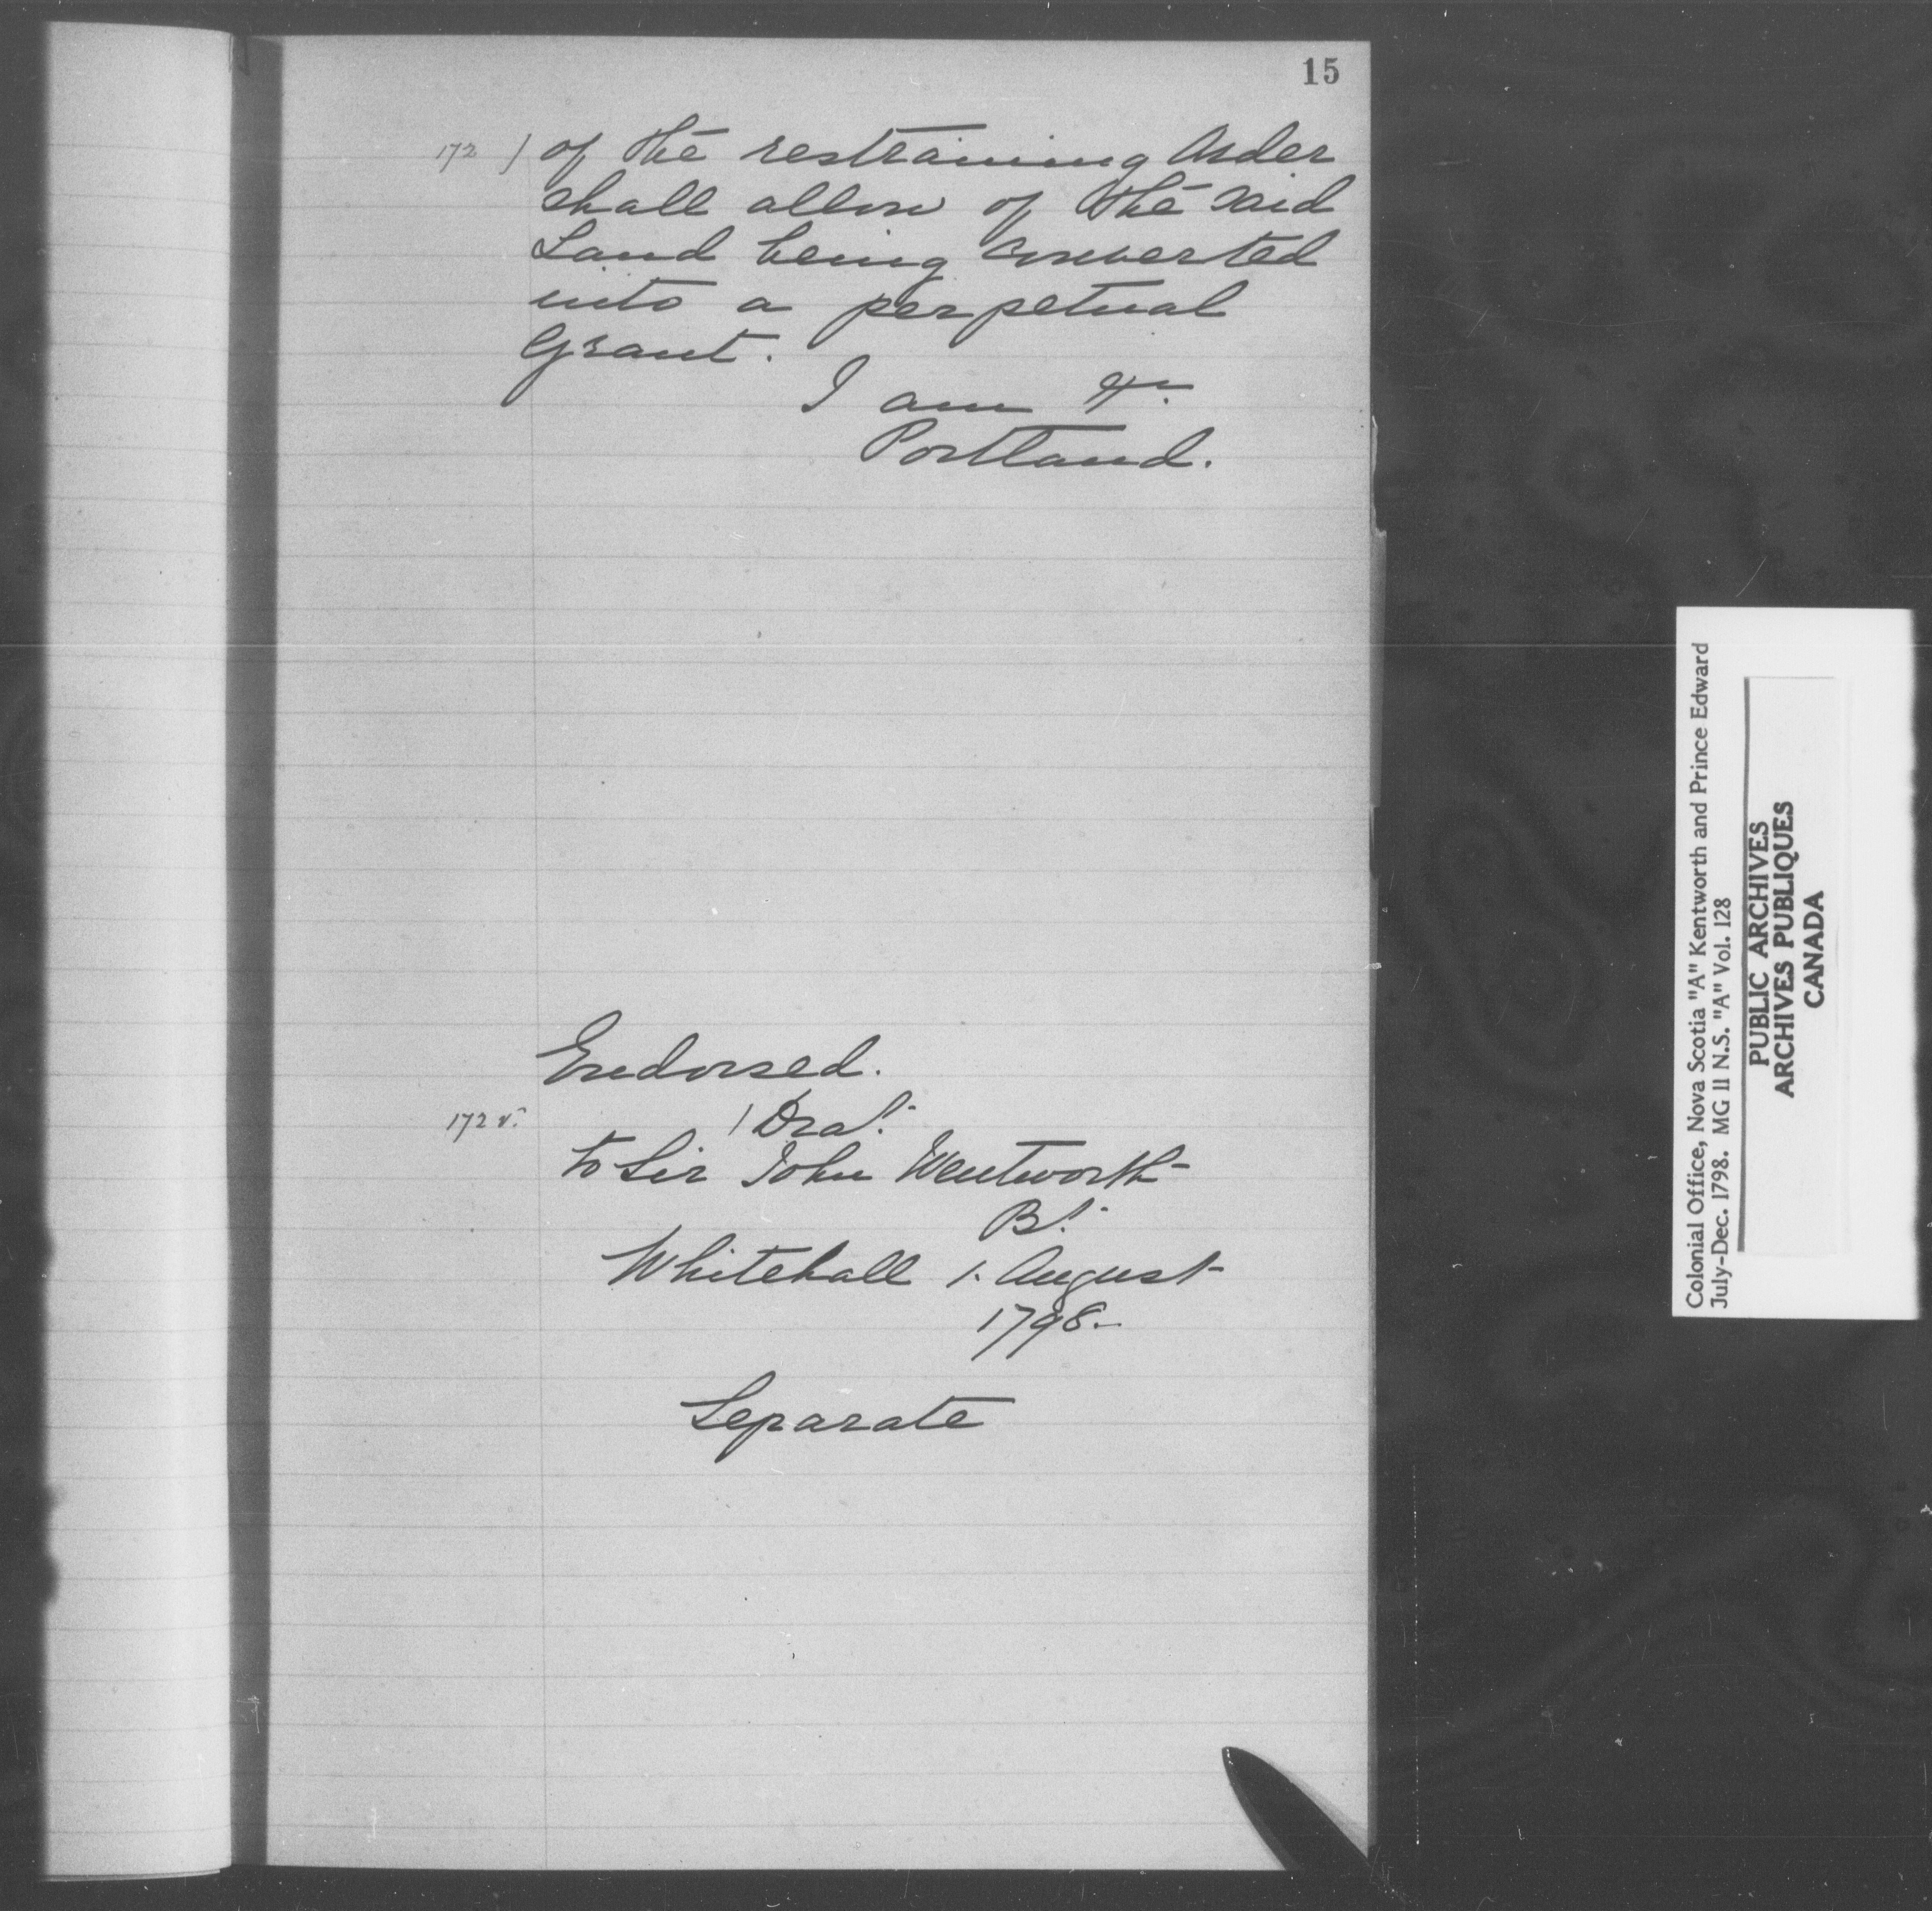 15
172 / of the restraining Order
shall allow of the said
Land being converted
into a perpetual
Grant.
I am &c.
Portland.
Endorsed.
172 v. / Dra.t
to Sir John Wentworth
B.t
Whitehall 1. August
1798.
Separate
Colonial Office, Nova Scotia "A" Kentworth and Prince Edward
July-Dec. 1798. MG 11 N.S. "A" Vol. 128
PUBLIC ARCHIVES
ARCHIVES PUBLIQUES
CANADA